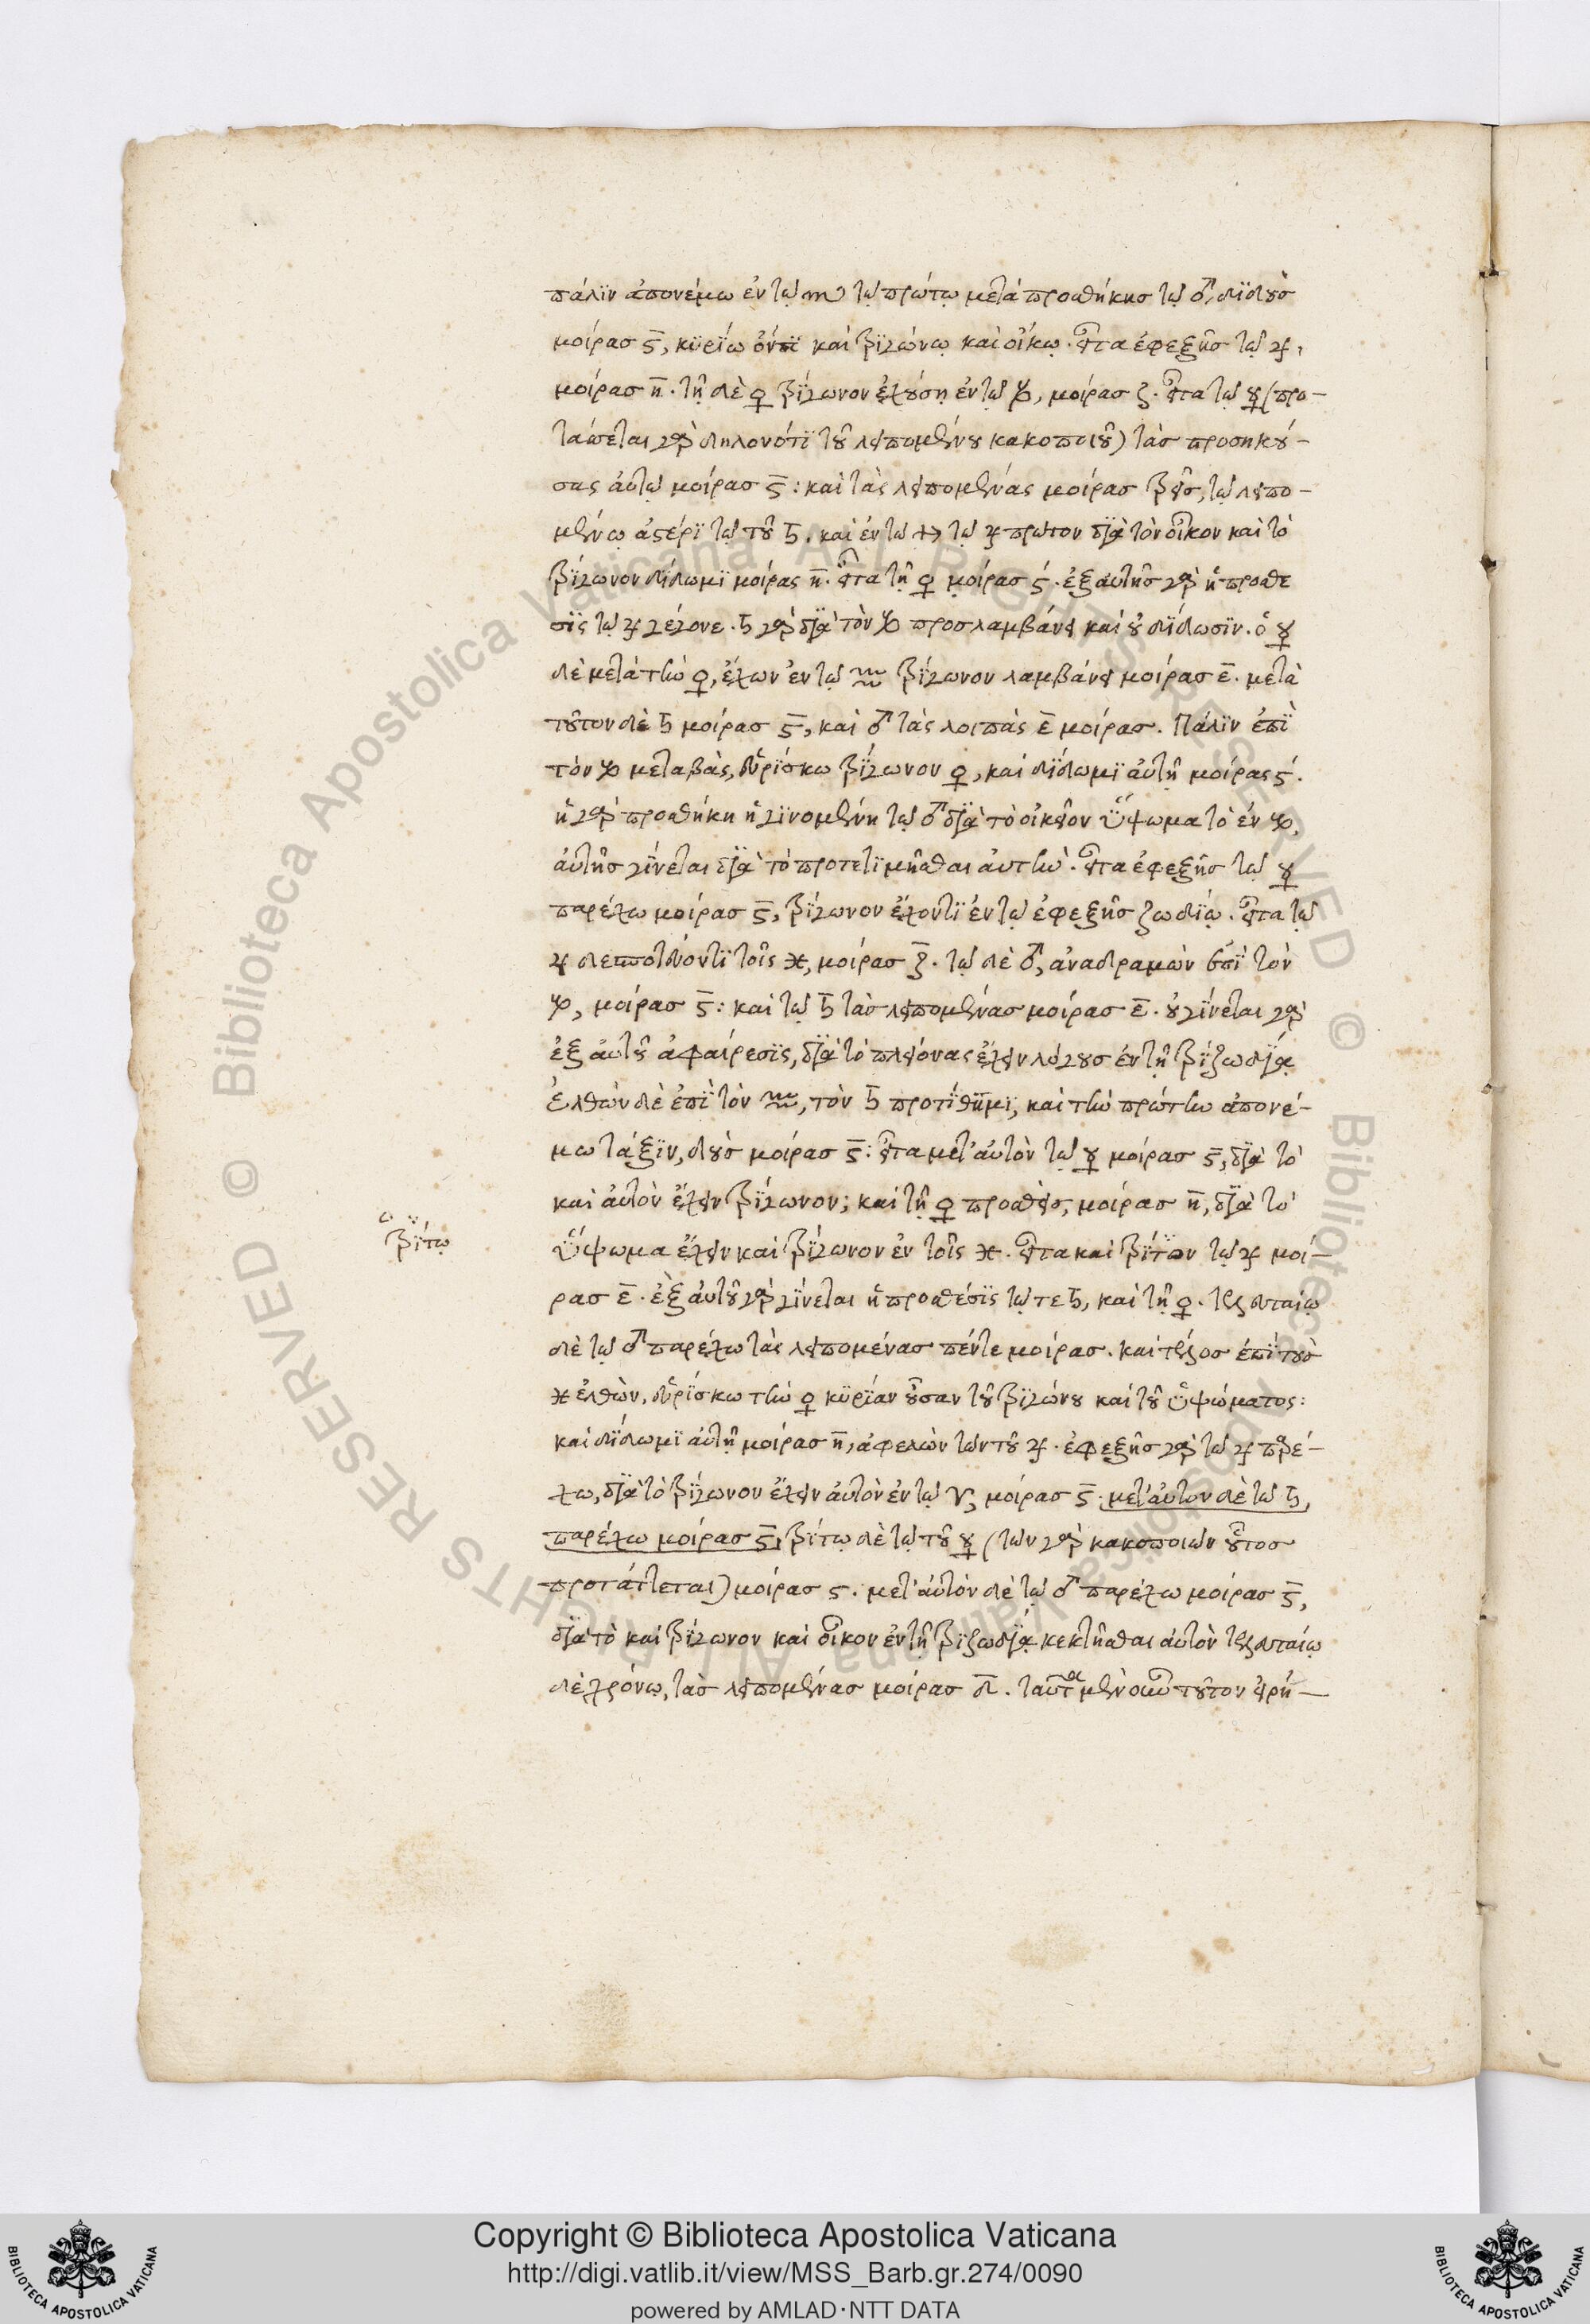 πάλϊν ἀπονέμω ἐν τῷ ♏ τῷ πρώτῳ μετὰ προσθήκης τῷ ♂, δϊδοὺς
μοίρας ϛ̅, κϋρίῳ ὄντϊ καὶ τρϊγώνῳ καὶ οἴκῳ. εἶτα ἐφεξῆς τῷ ♃,
μοίρας η̅. τῇ δὲ ♀ τρΐγωνον ἐχούσῃ ἐν τῷ ♑, μοίρας ζ. εἶτα τῷ ☿ (προ-
τάσσεται γὰρ δηλονότϊ τοῦ λειπομένου κακοποιοῦ) τὰς προσηκού-
σας αὐτῷ μοίρας ϛ̅: καὶ τὰς λειπομένας μοίρας τρεῖς, τῷ λειπο-
μένῳ ἀστέρϊ τῷ τοῦ ♄. καὶ ἐν τῷ ♐ τῷ ♃ πρῶτον δϊὰ τὸν οἶκον καὶ τὸ
τρΐγωνον δίδωμϊ μοίρας η̅. εἶτα τῇ ♀ μοίρας ϛ. ἐξ αὐτῆς γὰρ ἡ πρόσθε
σϊς τῷ ♃ γέγονε. ♄ γὰρ δϊὰ τὸν ♑ προσλαμβάνει καὶ οὐ δϊδωσϊν. ὁ ☿
δὲ μετὰ τὴν ♀, ἔχων ἐν τῷ ♒ τρΐγωνον λαμβάνει μοίρας ε̅. μετὰ
τοῦτον δὲ ♄ μοίρας ϛ̅, καὶ ♂ τὰς λοιπὰς ε̅ μοίρας. Πάλϊν ἐπϊ
τὸν ♑ μεταβὰς, εὑρΐσκω τρΐγωνον ♀, καὶ δΐδωμϊ αὐτῇ μοίρας ϛ.
ἡ γὰρ προσθήκη ἡ γϊνομένη τῷ ♂ δϊὰ τὸ οἰκεῖον ὕψωμα τὸ ἐν ♑,
αὐτῆς γΐνεται δϊὰ τὸ προτετϊμῆσθαι αὐτὴν. εἶτα ἐφεξῆς τῷ ☿
παρέχω μοίρας ϛ̅, τρΐγωνον ἔχοντϊ ἐν τῷ ἐφεξῆς ζωδΐῳ. εἶτα τῷ
♃ δεσποτεύοντϊ τοῖς ♓, μοίρας ζ̅. τῷ δὲ ♂, ἀναδραμὼν ἐπϊ τὸν
♑, μοίρας ϛ̅: καὶ τῷ ♄ τὰς λειπομένας μοίρας ε̅. οὐ γΐνεται γὰρ
ἐξ αὐτοῦ ἀφαίρεσϊς, δϊὰ τὸ πλείονας ἔχειν λόγους ἐν τῇ τρϊζωδΐᾳ
ἐλθὼν δὲ ἐπϊ τὸν ♒, τὸν ♄ προτΐθημϊ, καὶ τὴν πρώτην ἀπονέ-
μω τάξϊν, δοὺς μοίρας ϛ̅: εἶτα μετ' αὐτὸν τῷ ☿ μοίρας ϛ̅, δϊὰ τὸ
καὶ αὐτὸν ἔχειν τρΐγωνον; καὶ τῇ ♀ προσθεὶς, μοίρας η̅, δϊὰ τὸ
ὕψωμα ἔχειν καὶ τρΐγωνον ἐν τοῖς ♓. εἶτα καὶ τρΐτον τῷ ♃ μοί-
τρΐτῳ
ρας ε̅. ἐξ αὐτοῦ γὰρ γΐνεται ἡ προσθέσϊς τῷ τε ♄, καὶ τῇ ♀. τελευταίῳ
δὲ τῷ ♂ παρέχω τὰς λειπομένας πέντε μοίρας. καὶ τέλος ἐπϊ τοὺς
♓ ἐλθὼν, εὑρΐσκω τὴν ♀ κϋρΐαν οὖσαν τοῦ τρϊγώνου καὶ τοῦ ὑψώματος:
καὶ δΐδωμϊ αὐτῇ μοίρας η̅, ἀφελὼν τῶν τοῦ ♃. ἐφεξῆς γὰρ τῷ ♃ παρέ-
χω, δϊὰ τὸ τρΐγωνον ἔχειν αὐτὸν ἐν τῷ ♈, μοίρας ϛ̅. μετ' αὐτον δὲ τῷ ♄,
παρέχω μοίρας ϛ̅, τρΐτῳ δὲ τῷ τοῦ ☿ (τῶν γὰρ κακοποιῶν οὗτος
προτάττεται) μοίρας ϛ. μετ' αὐτὸν δὲ τῷ ♂ παρέχω μοίρας ϛ̅,
δϊὰ τὸ καὶ τρΐγωνον καὶ οἶκον ἐν τῇ τρϊζωδΐᾳ κεκτῆσθαι αὐτὸν τελευταίῳ
δὲ χρόνῳ, τὰς λειπομένας μοίρας δ̅. ταῦτα μὲν οὖν τοῦτον εἰρή-
Copyright © Biblioteca Apostolica Vaticana
http://digi.vatlib.it/view/MSS_Barb.gr.274/0090
powered by AMLAD·NTT DATA
BIBLIOTECA APOSTOLICA VATICANA
BIBLIOTECA APOSTOLICA VATICANA